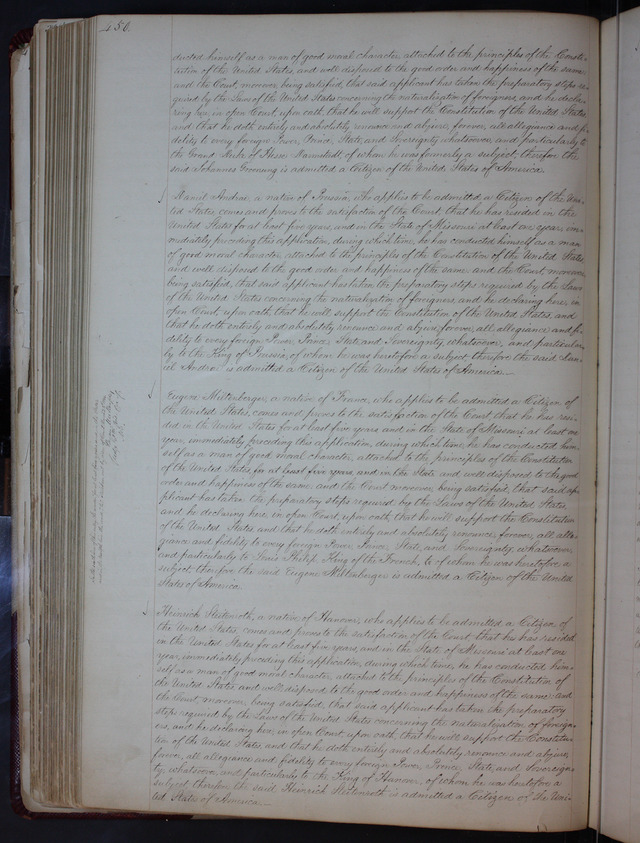 456.
ducted himself as a man of good moral character, attached to the principles of the Consti-
tution of the United States, and well disposed to the good order and happiness of the same
and the Court, moreover, being satisfied, that said applicant has taken the preparatory steps re-
quired by the Laws of the United States concerning the naturalization of foreigners, and he decla-
ring here, in open Court, upon oath, that he will support the Constitution of the United States,
and that he doth entirely and absolutely renounce and abjure, forever, all allegiance and fi-
delity to every foreign Power, Prince, State, and Sovereignty whatsoever, and particularly to
the Grand Duke of Hesse Darmstadt, of whom he was formerly a subject; therefore the
said Johannes Groening is admitted a Citizen of the United States of America.
Daniel Andrae, a native of Prussia, who applies to be admitted a Citizen of the Uni-
ted States, comes and proves to the satisfaction of the Court, that he has resided in the
United States for at least five years, and in the State of Missouri at least one year, im-
mediately preceding this application, during which time, he has conducted himself as a man
of good moral character, attached to the principles of the Constitution of the United States,
and well disposed to the good order and happiness of the same, and the Court, moreover,
being satisfied, that said applicant has taken the preparatory steps required by the Laws
of the United States concerning the naturalization of foreigners, and he declaring here, in
open Court, upon oath, that he will support the Constitution of the United States, and
that he doth entirely and absolutely renounce and abjure, forever, all allegiance and fi-
delity to every foreign Power, Prince, State and Sovereignty whatsoever, and particular-
ly to the King of Prussia, of whom he was heretofore a subject; therefore the said Dan-
iel Andrae is admitted a Citizen of the United States of America.
Eugene Miltenberger, a native of France, who applies to be admitted a Citizen of
the United States, comes and proves to the satisfaction of the Court that he has resi-
ded in the United States for at least five years and in the State of Missouri at least one
year, immediately preceding this application, during which time, he has conducted him-
self as a man of good moral character, attached to the principles of the Constitution
of the United States, for at least five years, and in the State and well disposed to the good
order and happiness of the same, and the Court moreover being satisfied, that said ap-
plicant has taken the preparatory steps required by the Laws of the United States,
and he declaring here, in open Court, upon oath, that he will support the Constitution
of the United States, and that he doth entirely and absolutely renounce, forever, all alle-
giance and fidelity to every foreign Power, Prince, State, and Sovereignty, whatsoever,
and particularly to Louis Philip King of the French, to of whom he was heretofore a
subject; therefore the said Eugene Miltenberger is admitted a Citizen of the United
States of America.
Heinrich, a native of Hanover, who applies to be admitted a Citizen of
the United States, comes and proves to the satisfaction of the Court that he has resided
in the United States for at least five years, and in the State of Missouri at least one
year, immediately preceding this application, during which time, he has conducted him-
self as a man of good moral character, attached to the principles of the Constitution of
the United States, and well disposed to the good order and happiness of the same; and
the Court, moreover, being satisfied, that said applicant has taken the preparatory
steps required by the Laws of the United States concerning the naturalization of foreign-
ers, and he declaring here, in open Court, upon oath, that he will support the Constitu-
tion of the United States, and that he doth entirely and absolutely renounce and abjure,
forever, all allegiance and fidelity to every foreign Power, Prince, State, and Sovereign-
ty, whatsoever, and particularly to the King of Hanover, of whom he was heretofore a
subject; therefore the said Heinrich is admitted a Citizen of the Uni-
ted States of America.